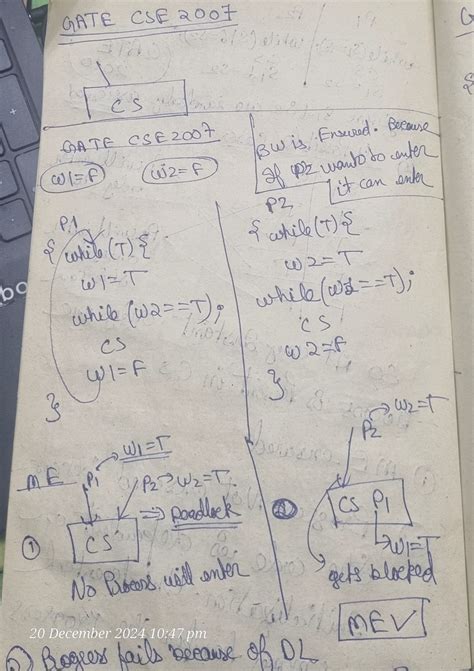 GATE CSE 2007
CS
GATE CSE 2007
w1=F
w2=F
BW is Ensured. Because
If P2 wants to enter
it can enter
P1
{ while(T){
w1=T
while(w2==T);
CS
w1=F
}
P2
{ while(T){
w2=T
while(w1==T);
CS
w2=F
}
ME
P1 → w1=T
P2 → w2=T
⇒ Deadlock
① CS
No Process will enter
P2 → w2=T
② CS P1
→ w1=T
gets blocked
ME✓
20 December 2024 10:47 pm
Progress fails because of DL